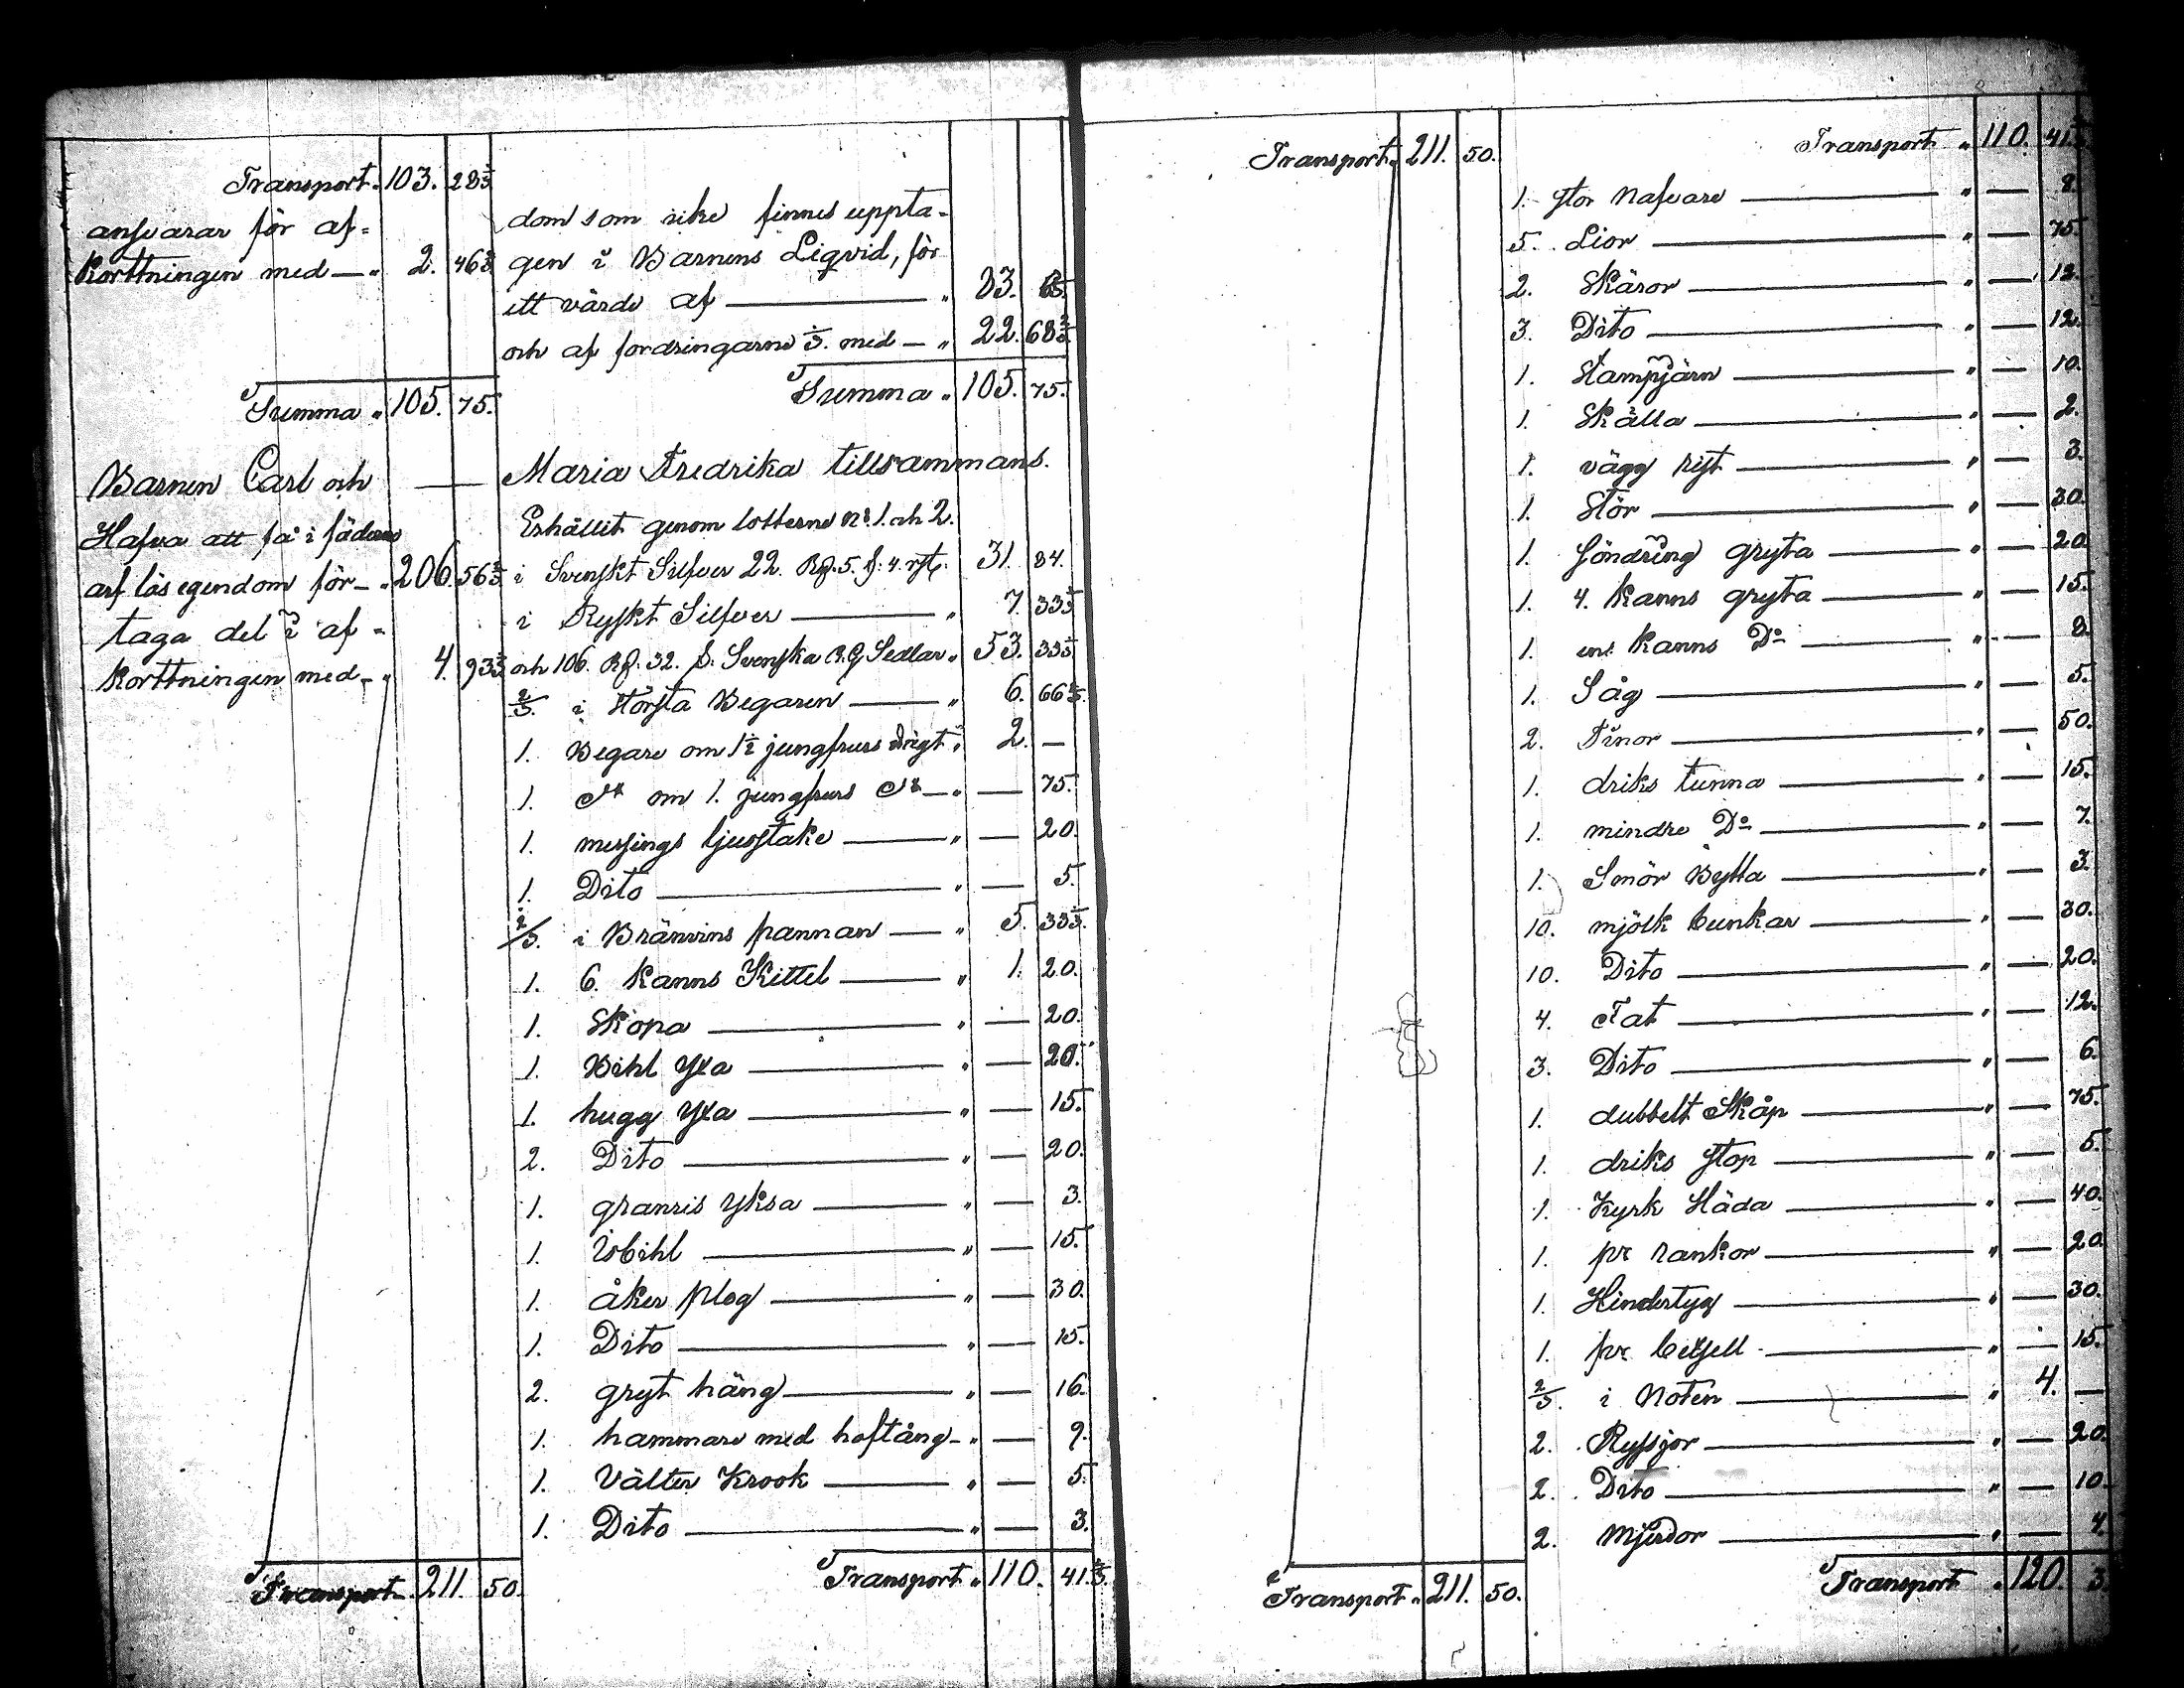 Transport " 103. 28 1/3
ansvarar för af=
Korttningen med — " 2. 46 2/3
Summa " 105. 75.
Barnen Carl och
Hafva att få i fäderne
arf lös egendom för — " 206. 56 2/3
taga del i af=
Korttningen med — " 4. 93 1/3
Transport " 211. 50.
dom som icke finnes uppta=
gen i Barnens Liqvid, för
ett värde af — " 83. 6 1/3.
och af fordringarne 1/3. med — " 22. 68 2/3
Summa " 105. 75.
Maria Fredrika tillsammans.
Erhållit genom lotterne No 1. och 2.
i Svenskt Silfver 22. 31. 84.
i Ryskt Silfver — " 7. 33 1/3
och 106. 32. Svenska Sedlar " 53. 33 1/3
2/3. i största Begaren — " 6. 66 2/3.
1. Begare om 1 1/2 jungfrurs drigt " 2. —
1. om 1. jungfrurs — " — 75.
1. messings ljusstake — " — 20.
1. Dito — " — 5.
2/3. i Bränvins pannan — " 5. 33 1/3.
1. 6. Kanns Kittel — " 1. 20.
1. Skopa — " — 20.
1. Bihl Yxa — " — 20.
1. hugg Yxa — " — 15.
2. Dito — " — 20.
1. granris Yksa — " — 3.
1. Isbihl — " — 15.
1. åker plog — " — 30.
1. Dito — " — 15.
2. gryt häng — " — 16.
1. hammare med hoftång — " — 9.
1. Välter Krook — " — 5.
1. Dito — " — 3.
Transport " 110. 41 2/3.
Transport " 211. 50.
Transport " 211. 50.
Transport " 110. 41 2/3
1. stor Nafvare — " — 8.
5. Lior — " — 75.
2. Skäror — " — 12.
3. Dito — " — 12.
1. Stampjärn — " — 10.
1. Skälla — " — 2.
1. vägg rist — " — 3.
1. Stör — " — 30.
1. Söndring gryta — " — 20.
1. 4. Kanns gryta — " — 15.
1. ens Kanns Do — " — 8.
1. Såg — " — 5.
2. Tinor — " — 50.
1. driks tunna — " — 15.
1. mindre Do — " — 7.
1. Smör Bytta — " — 3.
10. mjölk bunkar — " — 30.
10. Dito — " — 20.
4. Fat — " — 12.
3. Dito — " — 6.
1. dubbelt Skåp — " — 75.
1. driks stop — " — 5.
1. Kyrk Släda — " — 40.
1. pr rankor — " — 20.
1. Hindertyg — " — 30.
1. pr — " — 15.
2/3. i Noten — " 4. —
2. Ryssjor — " — 20.
2. Dito — " — 10.
2. Mjerdor — " — 4.
Transport " 120. 3.